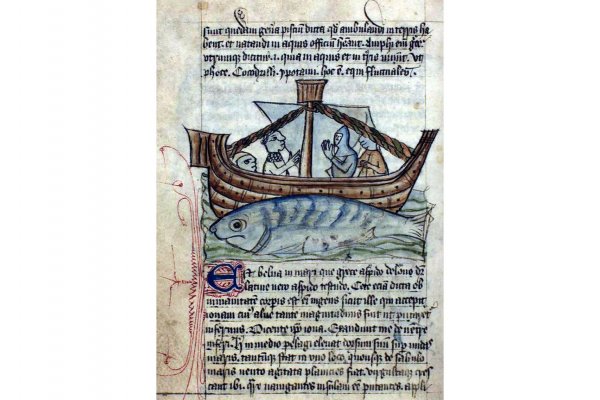 sunt quedam gen̄a pisciū dicta qd̄ ambulandi in terris ha
bent. et natandi in aquis officiū hēant. Amphi em̄ gre
utrumque dicitur .i. quia in aquis et in t̄ris vivūt. vt
phoce. Cocodrilli. ypotami. hoc ē. equi fluctuales.
Est belua in mari que grece aspido delone dr̄
latine vero aspido testudo. Cete eciā dicta ob
immanitatē corꝑis est em̄ ingens sicut ille qui accepit
ionam cuiꝰ alvꝰ tante magnitudinis fuit ut putaret᷑
infernus. Dicente ip̄o iona. Exaudivit me de ventre
inferi. in medio pelagi elevat dorsum suū sup̄ undas
maris. tantūque stat in vno loco. quousque de sabulo
maris vento agitata planicies fiat. virgultaque cres
cant ibi. navigantes insulam eē putantes. appli